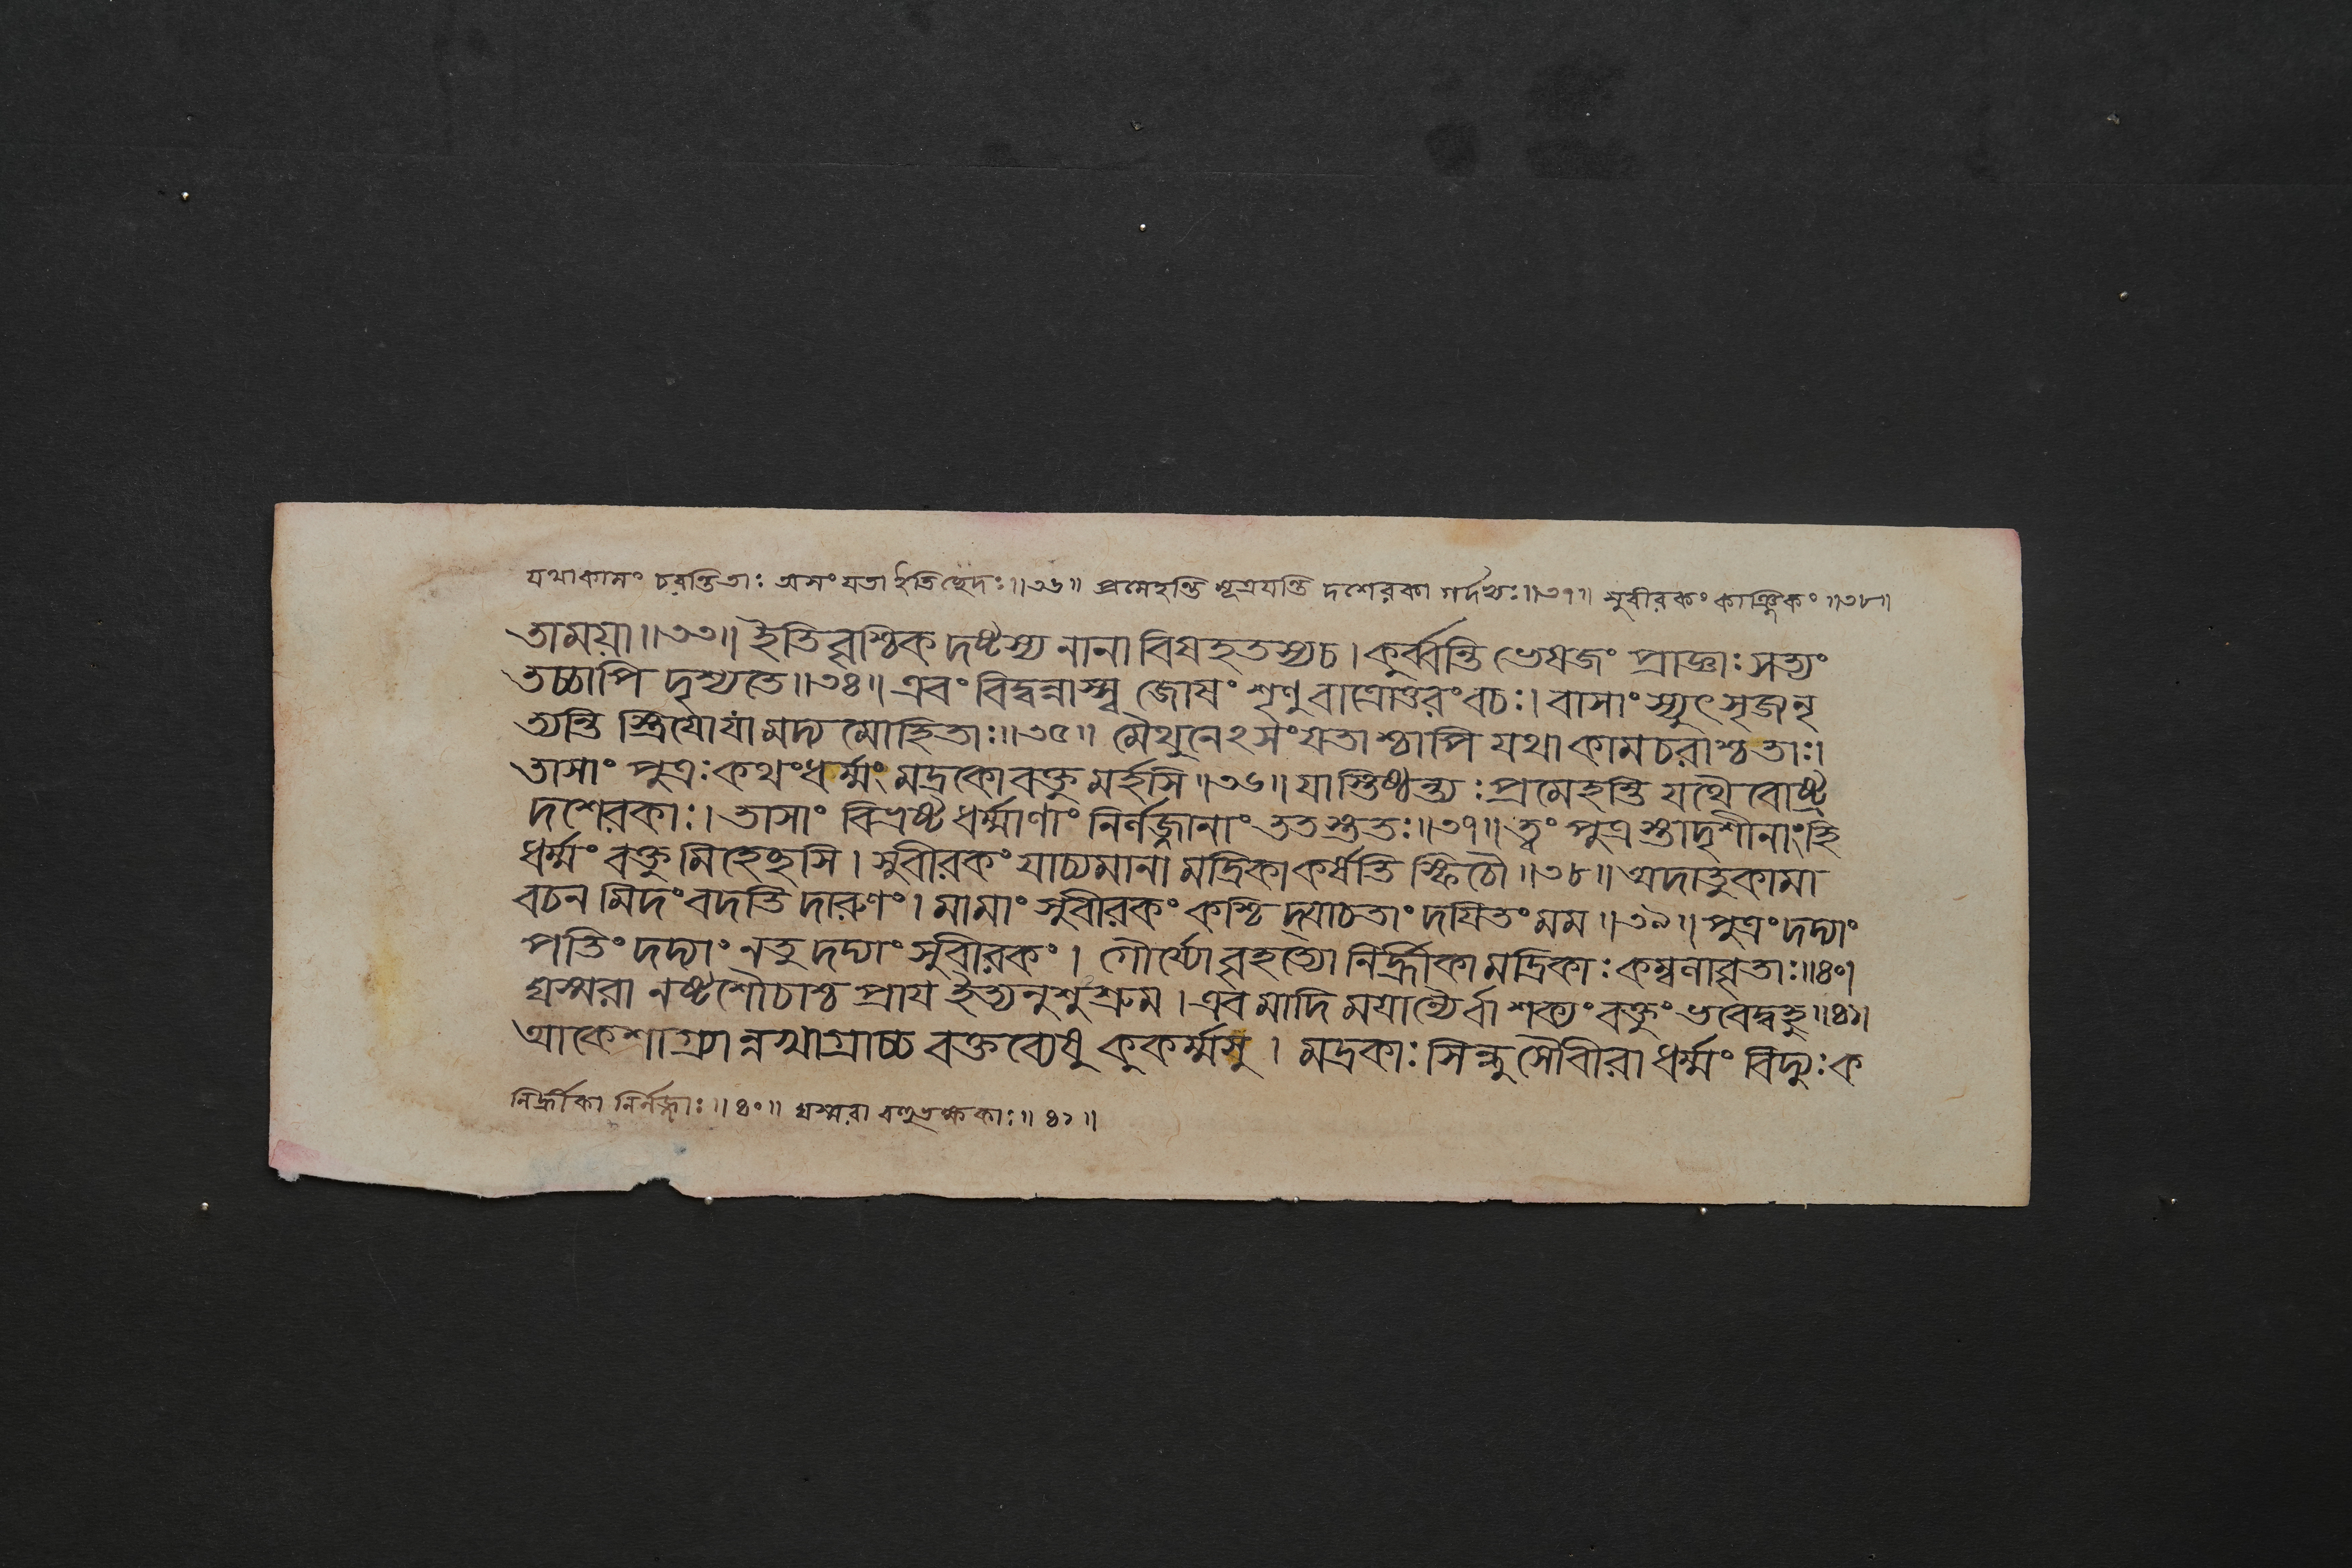 যথাকামং চরন্তিতাঃ অসংযতা ইতিছেদঃ॥৩৬॥ প্রমেহন্তি মূত্রযন্তি দশেরকা গর্দভাঃ॥৩৭॥ সুবীরকং কাঞ্জিকং॥৩৮॥
তাময়া॥৩৩॥ ইতিবৃশ্চিক দষ্টস্য নানা বিষহতস্যচ। কুর্ব্বন্তি ভেষজং প্রাজ্ঞাঃ সত্যং
তচ্চাপি দৃশ্যতে॥৩৪॥ এবং বিদ্বন্নাস্স্ব জোষং শৃণু বাত্রোত্তরং বচঃ। বাসাংস্যুৎসৃজনৃ
ত্যন্তি স্ত্রিযোযা মদ্য মোহিতাঃ॥৩৫॥ মৈথুনেঽসংযতাশ্চাপি যথা কামচরাশ্চতাঃ।
তাসাং পুত্রঃ কথংধর্ম্মং মদ্রকো বক্তুমর্হসি॥৩৬॥ যাস্তিষ্ঠন্ত্যঃ প্রমেহন্তি যথৈবোষ্ট্র
দশেরকাঃ। তাসাং বিভ্রষ্ট ধর্ম্মাণাং নির্লজ্জানাং ততস্ততঃ॥৩৭॥ ত্বং পুত্রস্তাদৃশীনাংহি
ধর্ম্মং বক্তুমিহেচ্ছসি। সুবীরকং যাচ্যমানা মদ্রিকাকর্ষতি স্ফিচৌ॥৩৮॥ অদাতুকামা
বচনমিদং বদতি দারুণং। মামাং সুবীরকং কশ্চিদ্যাচতাং দযিতং মম॥৩৯॥ পুত্রং দদ্যাং
পতিং দদ্যাং নতু দদ্যাং সুবীরকং। গৌর্য্যো বৃহত্যো নির্হ্রীকা মদ্রিকাঃ কম্বলাবৃতাঃ॥৪০।
ঘস্মরা নষ্টশৌচাশ্চ প্রায ইত্যনুশুশ্রুম। এবমাদি ময়ান্যৈর্বা শক্যং বক্তুং ভবেদ্বহু॥৪১।
আকেশাগ্র্যান্নখাগ্রাচ্চ বক্তব্যেষু কুকর্ম্মসু। মদ্রকাঃ সিন্ধুসৌবীরা ধর্ম্মং বিদ্যুঃ ক
নির্হ্রীকা নির্লজ্জাঃ॥৪০॥ ঘস্মরা বহুভক্ষকাঃ॥৪১॥